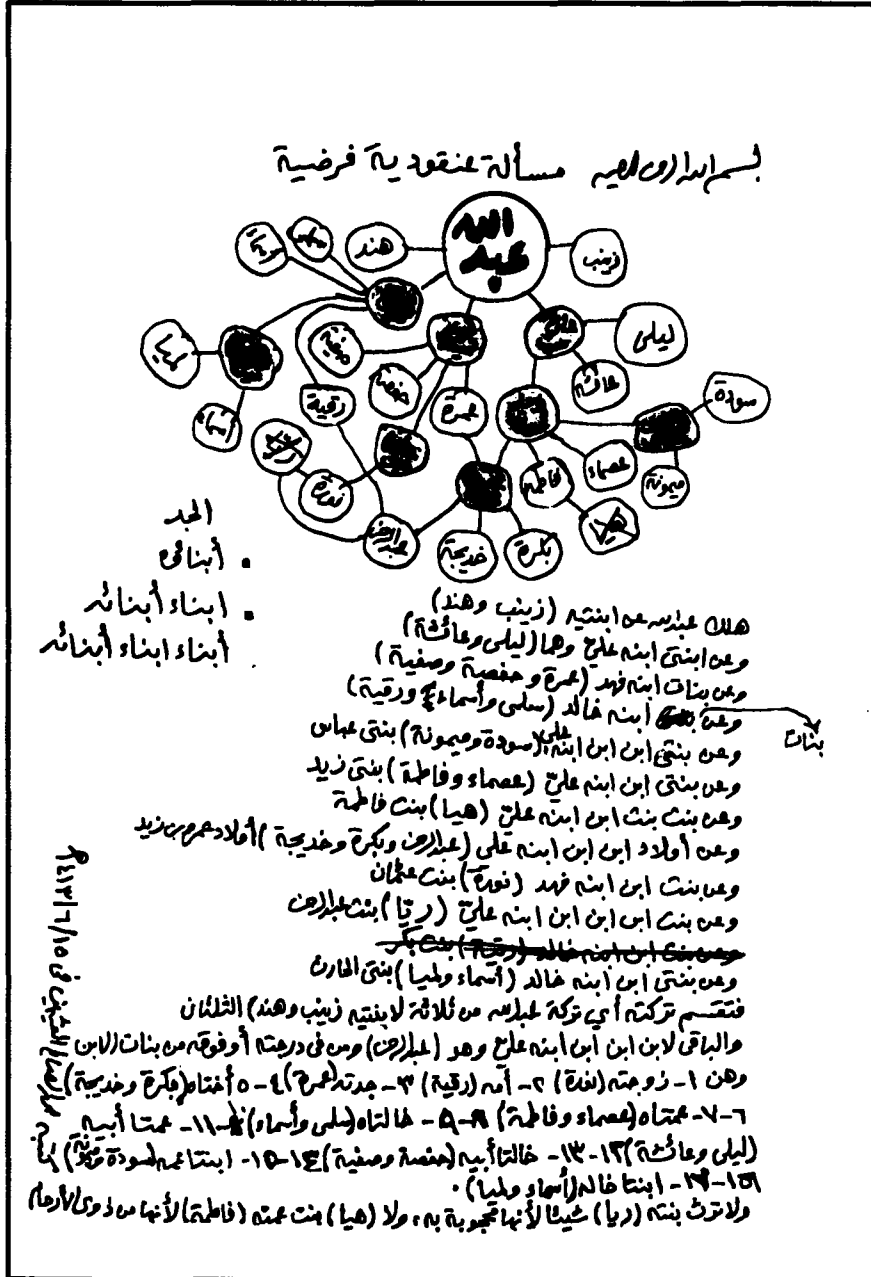 بسم الله الرحمن الرحيم مسألة عنقودية فرضية
عبد الله
زينب
هند
ليلى
عائشة
علي
فهد
صفية
حفصة
عمرة
رقية
سودة
ميمونة
عصماء
فاطمة
هيا
لميا
أسماء
نورة
ريا
عبدالرحمن
خديجة
بكرة
الجد
أبنائه
ابناء أبنائه
أبناء ابناء أبنائه
هلك عبدالله عن ابنتيه (زينب وهند)
وعن ابنتي ابنه علي وهما (ليلى وعائشة)
وعن بنات ابنه فهد (عمرة وحفصة وصفية)
وعن بنات ابنه خالد (سلمى وأسماء ورقية)
وعن بنتي ابن ابنه علي (سودة وميمونة) بنتي عباس
وعن بنتي ابن ابنه علي (عصماء وفاطمة) بنتي زيد
وعن بنت بنت ابن ابنه علي (هيا) بنت فاطمة
وعن أولاد ابن ابن ابنه علي (عبدالرحمن وبكرة وخديجة) أولاد عمر بن زيد
وعن بنت ابن ابنه فهد (نورة) بنت عثمان
وعن بنت ابن ابن ابن ابنه علي (ريا) بنت عبدالرحمن
وعن بنت ابن ابنه خالد (رقية) بنت بكر
وعن بنتي ابن ابنه خالد (أسماء ولميا) بنتي الحارث
فتقسم تركته أي تركة عبدالله من ثلاثة لابنتيه زينب وهند) الثلثان
والباقي لابن ابن ابن ابنه علي وهو (عبدالرحمن) ومن في درجته أو فوقه من بنات الابن
وهن ١- زوجته (نورة) ٢- أمه (رقية) ٣- جدته (عمرة) ٤-٥ أختاه (بكرة وخديجة)
٦-٧- عمتاه (عصماء وفاطمة) ٨-٩- خالتاه (سلمى وأسماء) ١٠-١١- عمتا أبيه
(ليلى وعائشة) ١٢-١٣- خالتا أبيه (حفصة وصفية) ١٤-١٥- ابنتا عمه (سودة وميمونة)
١٦-١٧- ابنتا خاله (أسماء ولميا).
ولا ترث بنته (ريا) شيئا لأنها محجوبة به، ولا (هيا) بنت عمته (فاطمة) لأنها من ذوي الأرحام
في ١٤١٣/٦/١٥هـ